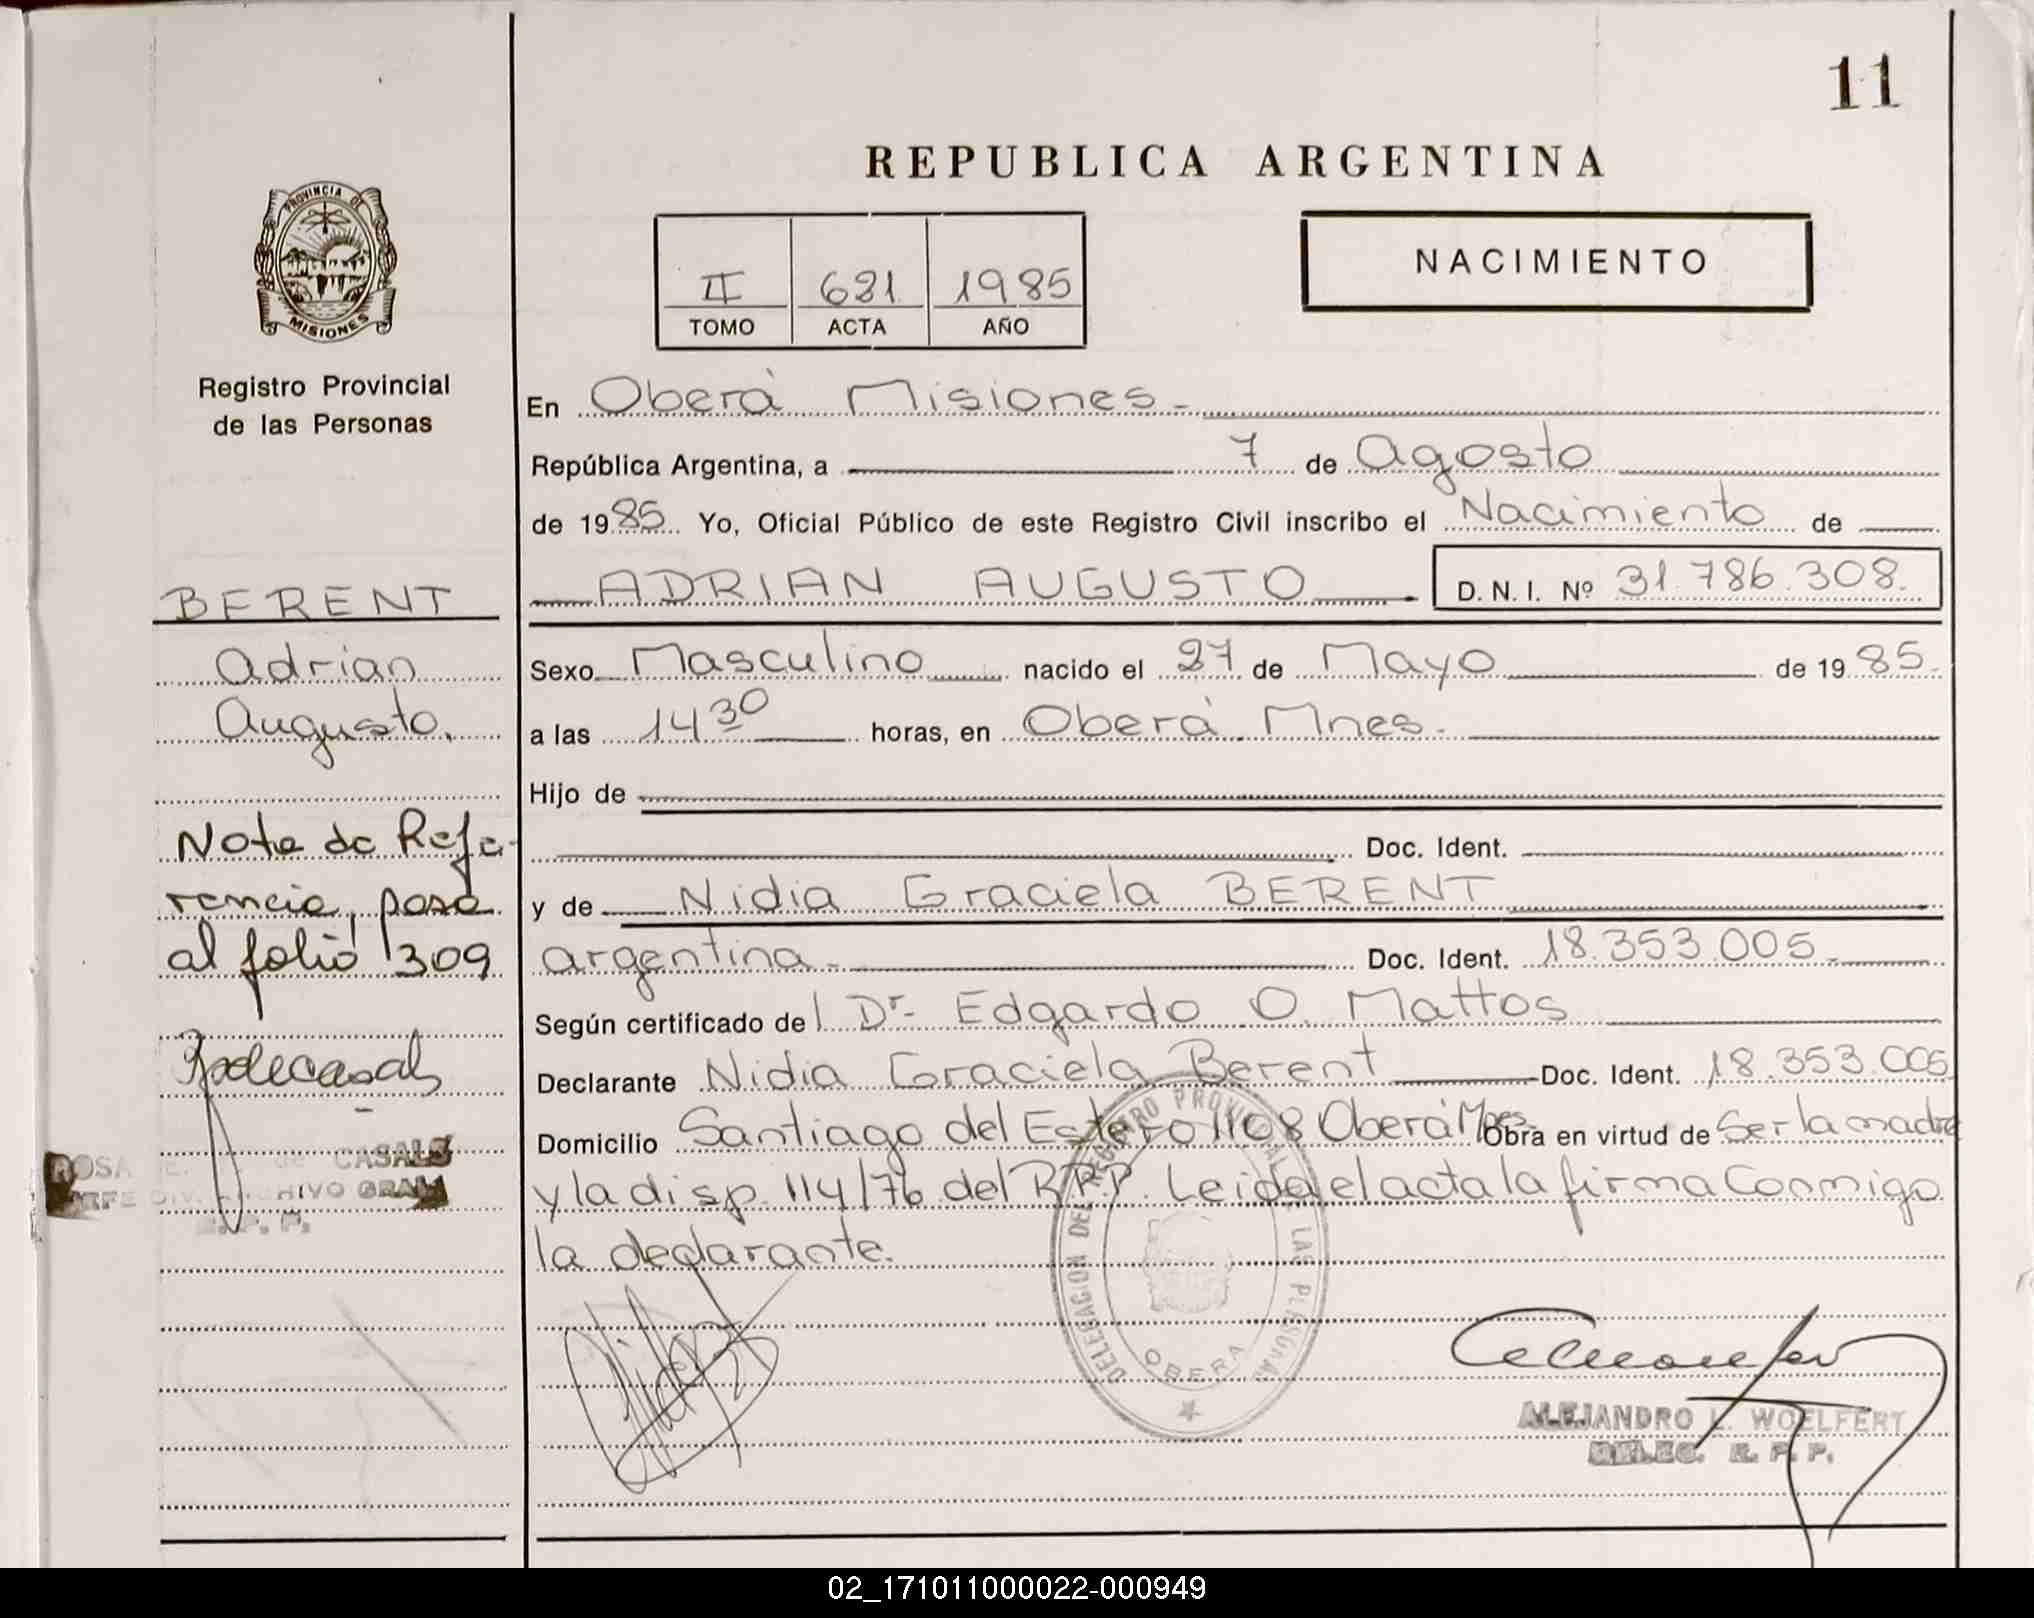 11
REPUBLICA ARGENTINA
PROVINCIA DE
MISIONES
Registro Provincial
de las Personas
II 681 1985
TOMO ACTA AÑO
NACIMIENTO
En Oberá Misiones-
República Argentina, a 7 de Agosto
de 1985 Yo, Oficial Público de este Registro Civil inscribo el Nacimiento de
ADRIAN AUGUSTO D. N. I. Nº 31.786.308.
Sexo Masculino nacido el 27 de Mayo de 1985.
a las 14 30 horas, en Oberá Mnes.
Hijo de
Doc. Ident.
y de Nidia Graciela BERENT
argentina- Doc. Ident. 18.353.005-
Según certificado del Dr- Edgardo O. Mattos
Declarante Nidia Graciela Berent Doc. Ident. 18.353.005
Domicilio Santiago del Estero 1108 Oberá Mnes. Obra en virtud de Ser la madre
y la disp. 114/76 del R.P.P. Leida el acta la firma Conmigo
la declarante.
BERENT
Adrian
Augusto.
Nota de Refe-
rencia, pasa
al folio 309
ROSA de CASALS
JEFE DIV. ARCHIVO GRAL
R. P. P.
DELEGACION DEL REGISTRO PROVINCIAL DE LAS PERSONAS
OBERA
ALEJANDRO L. WOELFERT
DELEG. R. P. P.
02_171011000022-000949